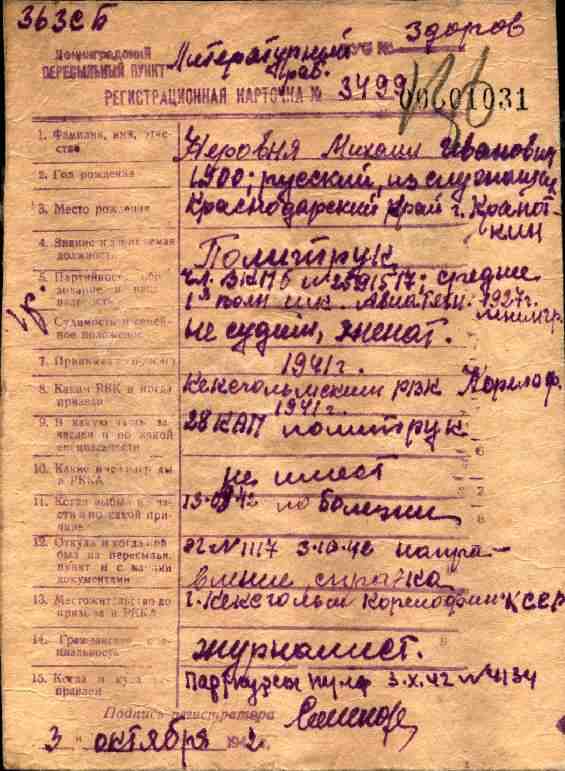 363СБ
Здоров
Ленинградский
ПЕРЕСЫЛЬНЫЙ ПУНКТ
Литературный
Прав.
РЕГИСТРАЦИОННАЯ КАРТОЧКА № 3499
00601031
1. Фамилия, имя, отчество
Неровня Михаил Иванович
2. Год рождения
1900; русский, из служащих
3. Место рождения
Краснодарский край г. Кропоткин
4. Звание и занимаемая должность
Политрук
5. Партийность, образование
чл. ВКПб №2591517; средне
1927г.
6. Судимость и семейное положение
не судим, женат.
7. Принимал присягу
1941г.
8. Каким РВК и когда призван
Кексгольмским РВК
1941г.
9. В какую часть зачислен и по какой специальности
28 КАП политрук
10. Какие имеет награды в РККА
не имеет
11. Когда выбыл из части и по какой причине
по болезни
12. Откуда и когда прибыл на пересыльн. пункт и с какими документами
ЭГ №1117 3-10-42 направление справка
13. Местожительство до призыва в РККА
г. Кексгольм КССР
14. Гражданская специальность
журналист.
15. Когда и куда направлен
3.X.42 №4134
Подпись регистратора
3 " октября 1942.